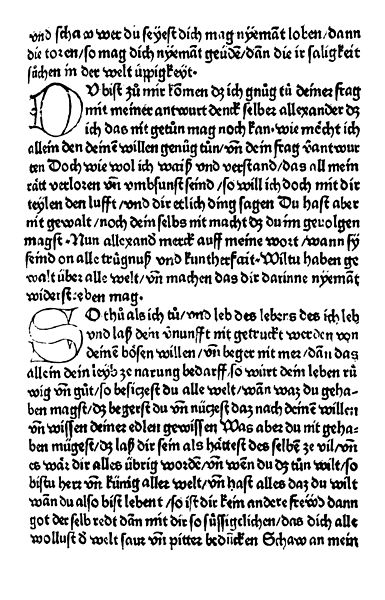 vnd scha w wer du seyest dich mag nyemāt loben/dann
die toren/so mag dich nyemāt geüdē/dañ die ir saligkeit
süchen in der welt üppigkeyt·
DU bist zů mir kōmen dz ich gnůg tů deiner frag
mit meiner antwurt denck selber allexander dz
ich das nit getůn mag noch kan·wie mecht ich
allein den deinē willen genůg tůn/vñ dein frag v̄antwur
ten Doch wie wol ich waiß vnd verstand/das all mein
rätt verloren vñ vmbsunst seind/so will ich doch mit dir
teylen den lufft/vnd dir etlich ding sagen Du hast aber
nit gewalt/noch dein selbs nit macht dz du im geuolgen
magst·Nun allexand merck auff meine wort/wann sy
seind on alle trügnuß vnd kuntherfait·Wiltu haben ge
walt über alle welt/vñ machen das dir darinne nyemāt
widerstreben mag·
SO thů als ich tů/vnd leb des lebers des ich leb
vnd laß dein v̄nunfft nit getruckt werden von
deinē bösen willen/vñ beger nit mer/dañ das
allein dein leyb ze narung bedarff/so würt dein leben rů
wig vñ gůt/so besiczest du alle welt/wañ waz du geha-
ben magst/dz begerst du vñ nüczest daz nach deinē willen
vñ wissen deiner edlen gewissen Was aber du nit geha-
ben mügest/dz laß dir sein als hättest des selbē ze vil/vñ
es wär dir alles übrig wordē/vñ wen du dz tůn wilt/so
bistu herr vñ künig aller welt/vñ hast alles daz du wilt
wañ du also bist lebent/so ist dir kein andere frewd dann
got der selb redt dañ mit dir so süssigclichen/das dich alle
wollust d͛ welt saur vñ pitter bedücken Schaw an mein